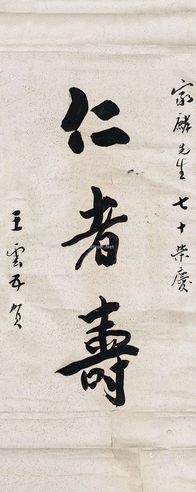 家麟先生七十榮慶
仁者壽
王雲五賀